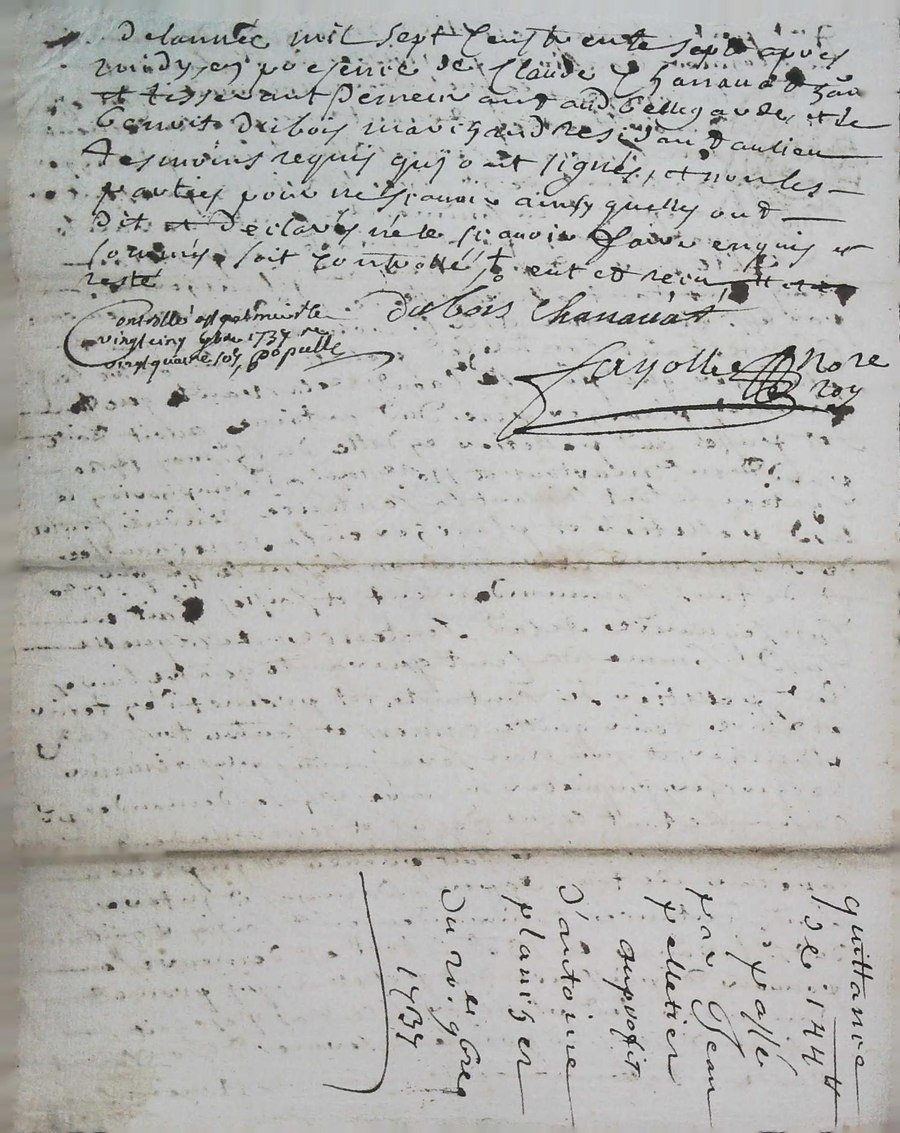 delannéé mil sept Cens trente sept apres
midy, en presence de Claude Chanauat
et tisserant Demeurant aud bellegarde, et de
benoit dubois marchand residant audlieu
tesmoins requis quy ont signés, et non les
parties pour ne scauoir ainsy quelles ont
dit et declarés ne le scauoir faire enquis et
sommés, soit controllé
resté
dubois Chanauat
Controllé
vingt cinq 9bre 1737
vingt quatre sols
fayolle Nore
Roy
quittance
de 144 tt
passé
par Jean
pelletier
auproffit
d'antoine
planiger
du 20.e 9bre
1737